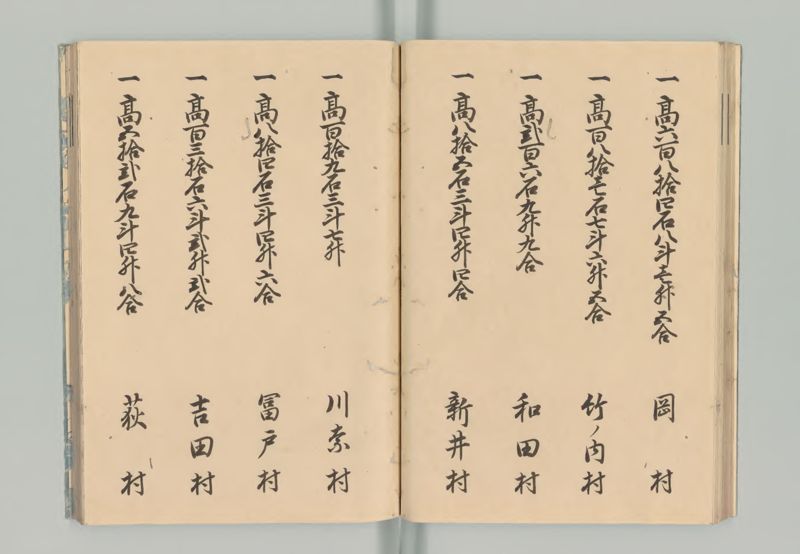 一高六百八拾四石八斗壱升五合 岡村
一高百八拾壱石七斗六升五合 竹ノ内村
一高弐百六石九升九合 和田村
一高八拾五石三斗四升四合 新井村
一高百拾九石三斗七升 川奈村
一高八拾四石三斗四升六合 冨戸村
一高百三拾石六斗弐升弐合 吉田村
一高五拾弐石九斗四升八合 荻村